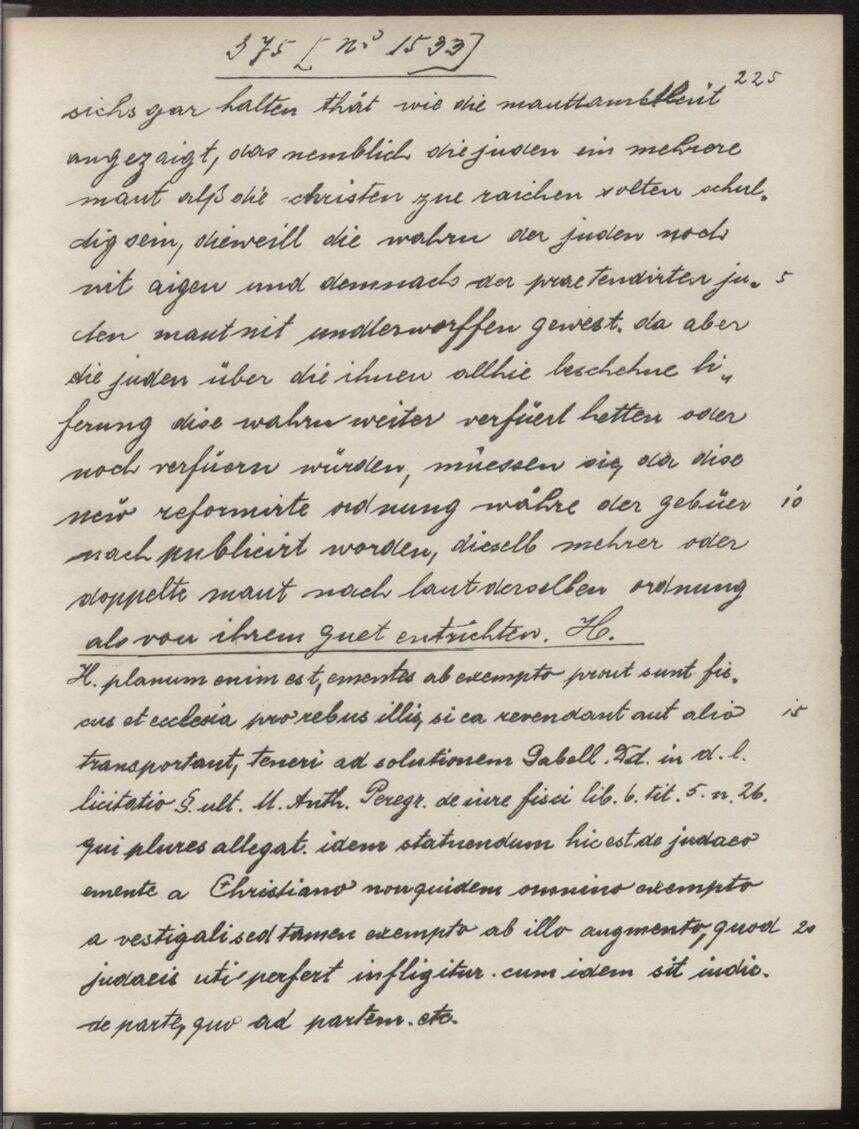 375 [nº 1533]
225
sichs gar halten thät wie die mauttambtleüt
angezaigt, das nemblich die juden ein mehrere
maut alß die christen zue raichen solten schul-
dig sein, dieweill die wahrn der juden noch
nit aigen und demnach der praetendirten ju- 5
den maut nit undterworffen gewest. da aber
die juden über die ihnen allhie beschehne li-
ferung dise wahrn weiter verfüert hetten oder
noch verfüern würden, müessen sie, da dise
new reformirte ordnung währe der gebüer 10
nach publicirt worden, dieselb mehrer oder
doppelte maut nach laut derselben ordnung
als von ihrem guet entrichten. H.
H. planum enim est, ementes ab exempto prout sunt fis-
cus et ecclesia pro rebus illis, si ea revendant aut alio 15
transportant, teneri ad solutionem Gabell. Dd. in d. l.
licitatio §. ult. M. Anth. Peregr. de iure fisci lib. 6. tit. 5. n. 26.
qui plures allegat. idem statuendum hic est de judaeo
emente a Christiano non quidem omnino exempto
a vestigali sed tamen exempto ab illo augmento, quod 20
judaeis uti perfert infligitur. cum idem sit iudic-
de parte, quo ad partem. etc.